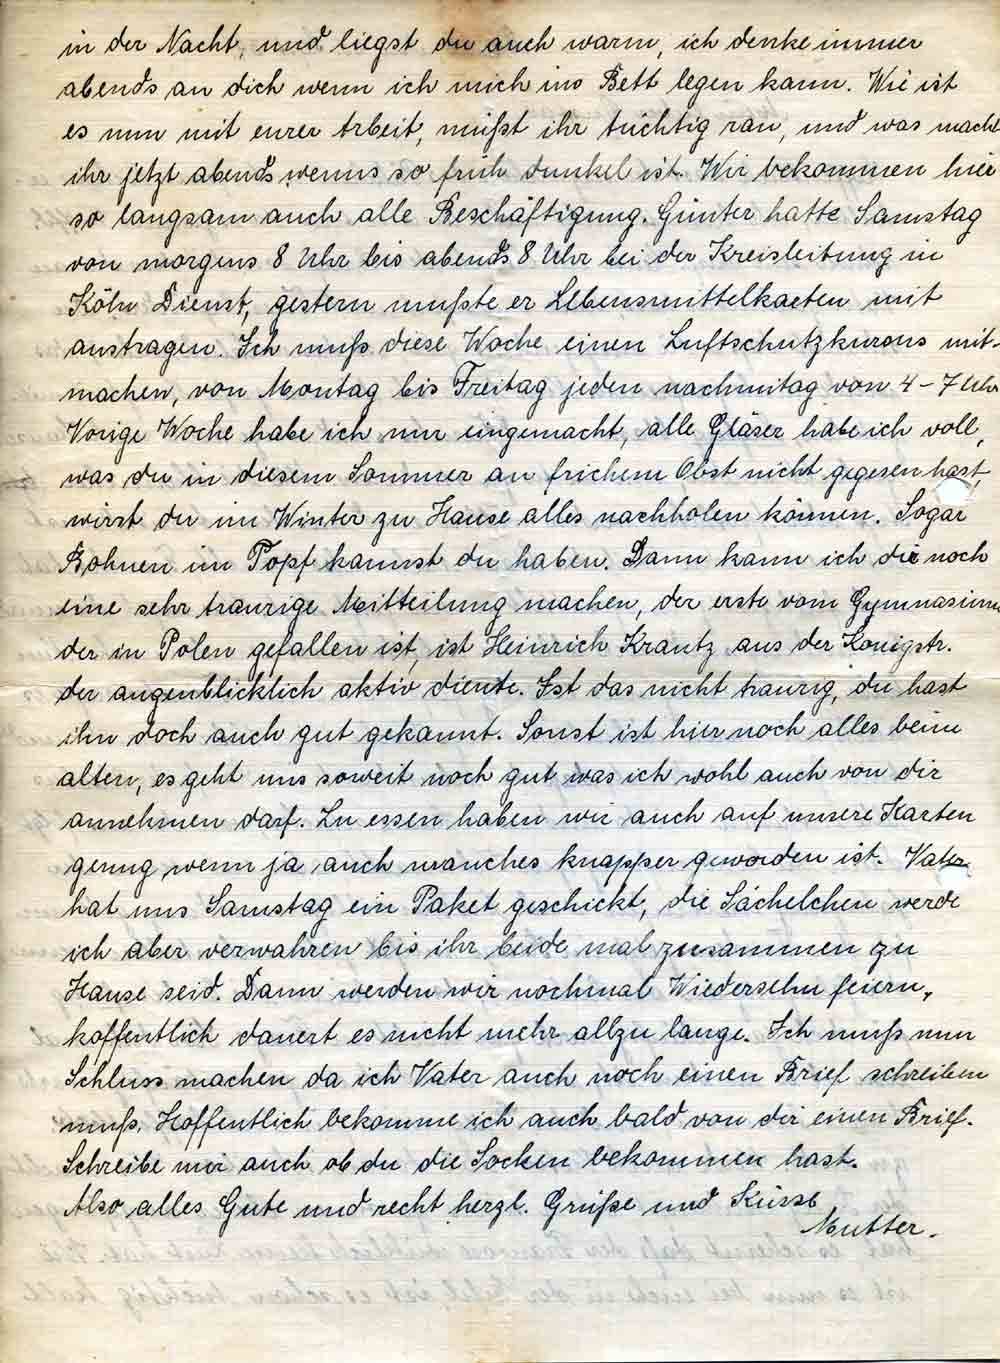 in der Nacht, und liegst du auch warm, ich denke immer
abends an dich wenn ich mich ins Bett legen kann. Wie ist
es nun mit eurer Arbeit, müßt ihr tüchtig ran, und was macht
ihr jetzt abends wenns so früh dunkel ist. Wir bekommen hier
so langsam auch alle Beschäftigung. Günter hatte Samstag
von morgens 8 Uhr bis abends 8 Uhr bei der Kreisleitung in
Köln Dienst, gestern mußte er Lebensmittelkarten mit
austragen. Ich muß diese Woche einen Luftschutzkursus mit-
machen, von Montag bis Freitag jeden nachmitag von 4-7 Uhr
Vorige Woche habe ich nur eingemacht, alle Gläser habe ich voll,
was du in diesem Sommer an frichem Obst nicht gegesen hast,
wirst du im Winter zu Hause alles nachholen können. Sogar
Bohnen im Topf kannst du haben. Dann kann ich dir noch
eine sehr traurige Mitteilung machen, der erste vom Gymnasium
der in Polen gefallen ist, ist Heinrich Krantz aus der Konigstr.
der augenblicklich aktiv diente. Ist das nicht traurig, du hast
ihn doch auch gut gekannt. Sonst ist hier noch alles beim
alten, es geht uns soweit noch gut was ich wohl auch von dir
annehmen darf. Zu essen haben wir auch auf unsere Karten
genug wenn ja auch manches knapper geworden ist. Vater
hat uns Samstag ein Paket geschickt, die Sächelchen werde
ich aber verwahren bis ihr beide mal zusammen zu
Hause seid. Dann werden wir nochmal Wiedersehn feiern,
hoffentlich dauert es nicht mehr allzu lange. Ich muß nun
Schluss machen da ich Vater auch noch einen Brief schreiben
muß. Hoffentlich bekomme ich auch bald von dir einen Brief.
Schreibe mir auch ob du die Socken bekommen hast.
Also alles Gute und recht herzl. Grüße und Küsse
Mutter.